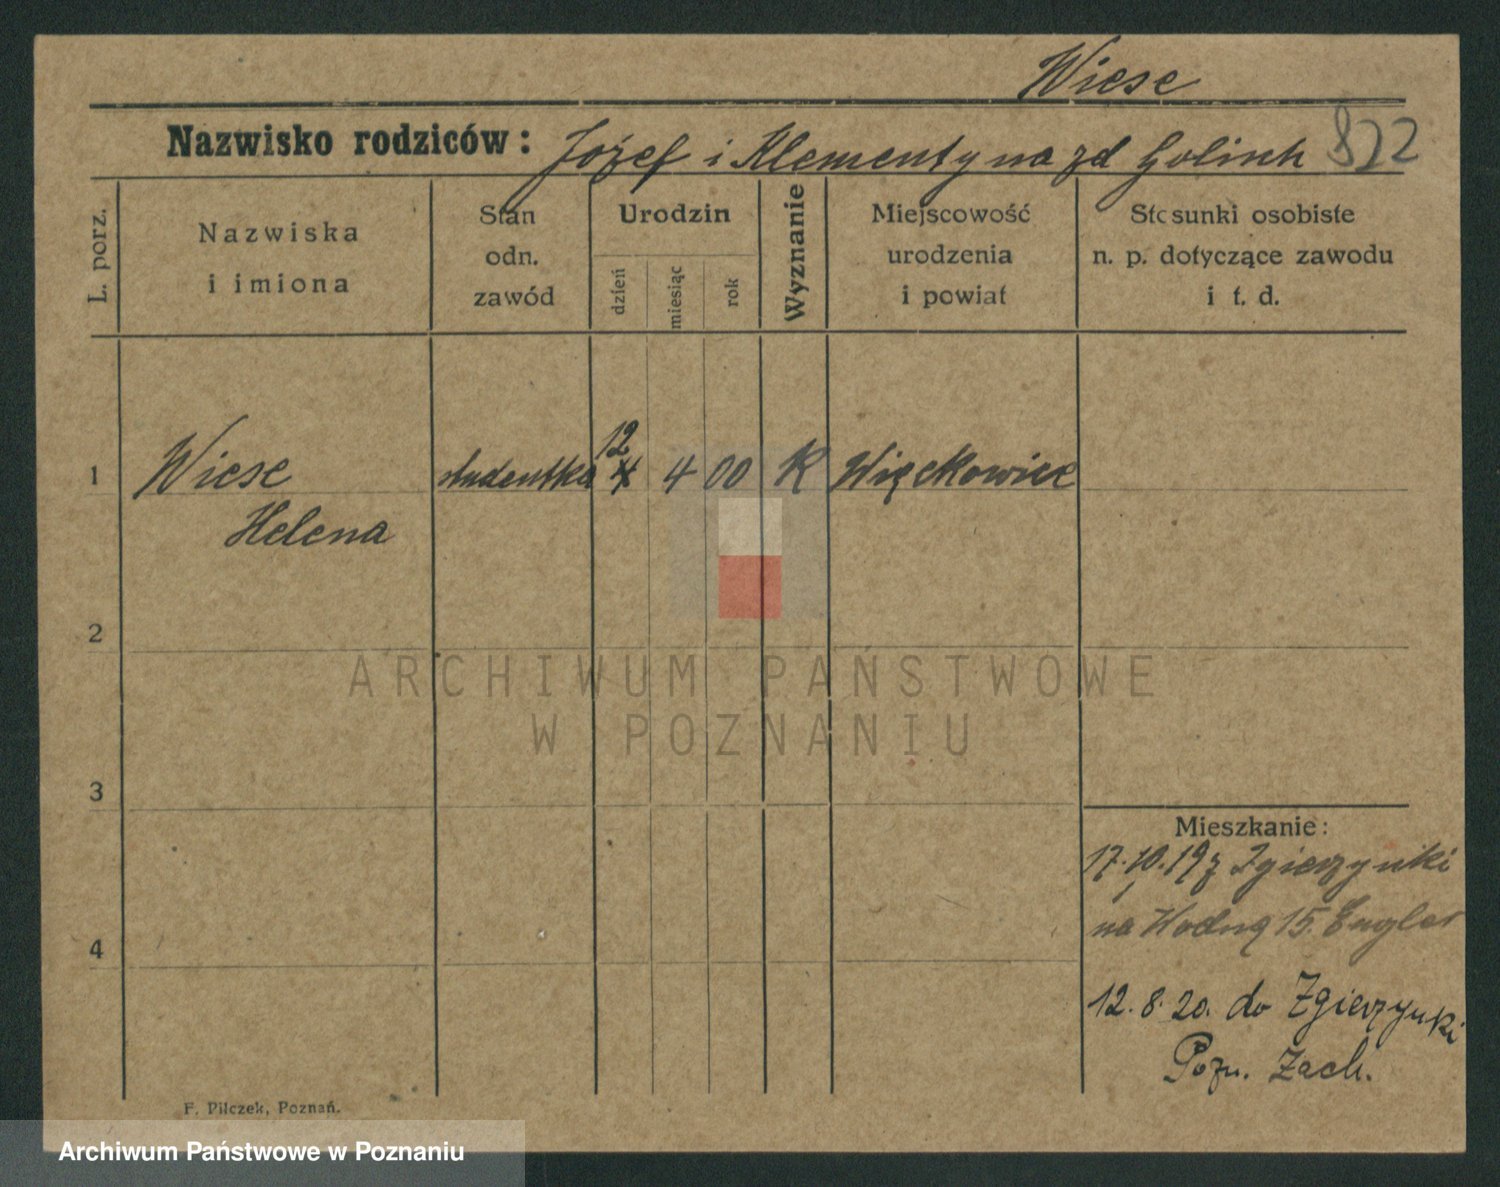 Wiese
Nazwisko rodziców: Józef i Klementyna zd Golisch 822
L. porz.
Nazwiska
i imiona
Stan
odn.
zawód
Urodzin
dzień
miesiąc
rok
Wyznanie
Miejscowość
urodzenia
i powiat
Stosunki osobiste
n. p. dotyczące zawodu
i t. d.
1 Wiese studentka 12 4 00 K Więckowice
Helena
2
ARCHIWUM PAŃSTWOWE
W POZNANIU
3
4
Mieszkanie:
17.10.19 z Zgierzynki
na Wodną 15. Engler
12.8.20. do Zgierzynki
Pozn. Zach.
F. Pilczek, Poznań.
Archiwum Państwowe w Poznaniu